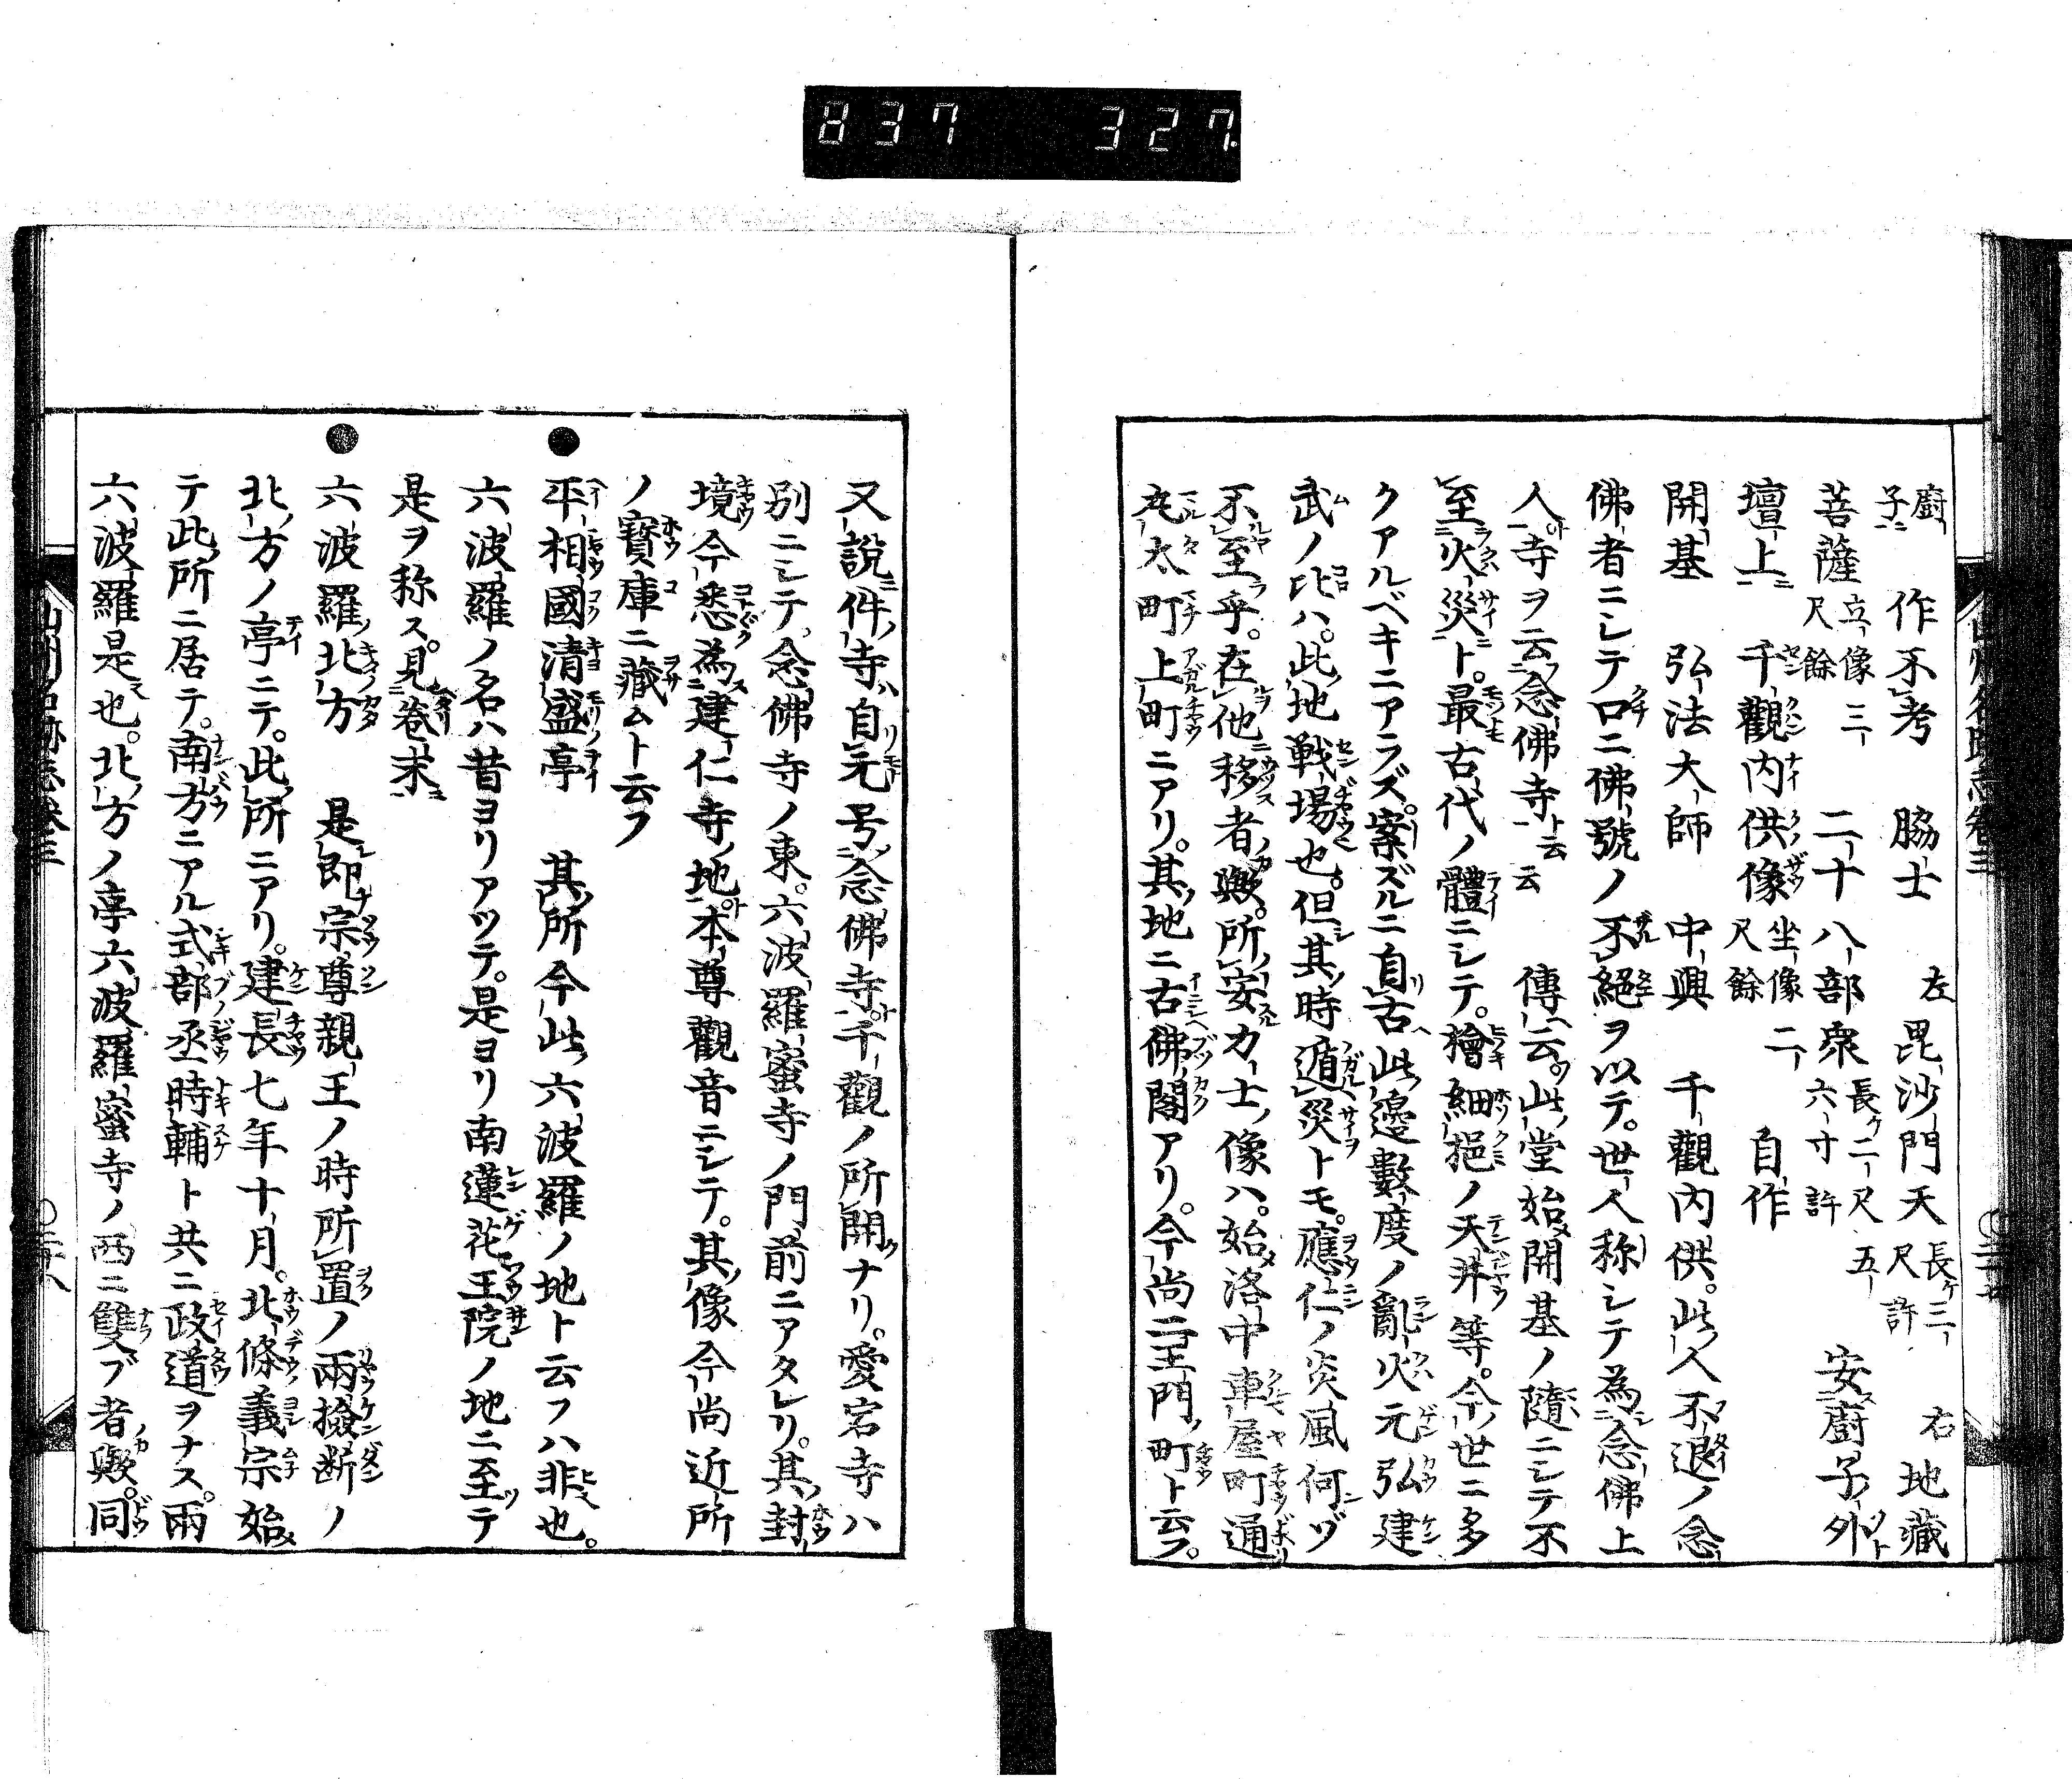 837 327
厨子ニ 作不考 脇士 左毘沙門天 長ケ三尺許 右地藏
菩薩 立像三尺餘 二十八部衆 長ケ二尺五六寸許 安厨子ノ外
壇上ニ 千觀内供像 坐像二尺餘 自作
開基 弘法大師 中興 千觀内供。此人不退ノ念
佛者ニシテ口ニ佛號ノ不絕ヲ以テ。世人称シテ為念佛上
人寺ヲ云念佛寺ト云云 傳云。此堂始開基ノ隨ニシテ不
至火災ト。最古代ノ體ニシテ。檜細挹ノ天井等。今世ニ多
クアルベキニアラズ。案ズルニ自古此邊數度ノ亂火元弘建
武ノ比ハ。此地戦場也。但其時遁災トモ。應仁ノ炎風何ゾ
不至乎。在他移者歟。所安力士ノ像ハ。始洛中車屋町通
丸太町上町ニアリ。其地ニ古佛閣アリ。今尚二王門町ト云フ。
又說件寺ハ自元号念佛寺ト。千觀ノ所開ナリ。愛宕寺ハ
別ニシテ。念佛寺ノ東。六波羅蜜寺ノ門前ニアタレリ。其封
境今悉為建仁寺地ト。本尊觀音ニシテ。其像今尚近所
ノ寳庫ニ藏ムト云フ
●平相國清盛亭 其所今此六波羅ノ地ト云フハ非也。
六波羅ノ名ハ昔ヨリアツテ。是ヨリ南蓮花王院ノ地ニ至テ
是ヲ称ス。見卷末ニ
●六波羅北方 是即宗尊親王ノ時所置ノ兩撿断ノ
北方ノ亭ニテ。此所ニアリ。建長七年十月。北條義宗始
テ此所ニ居テ。南方ニアル式部丞時輔ト共ニ政道ヲナス。兩
六波羅是也。北方ノ亭六波羅蜜寺ノ西ニ雙ブ者歟。同